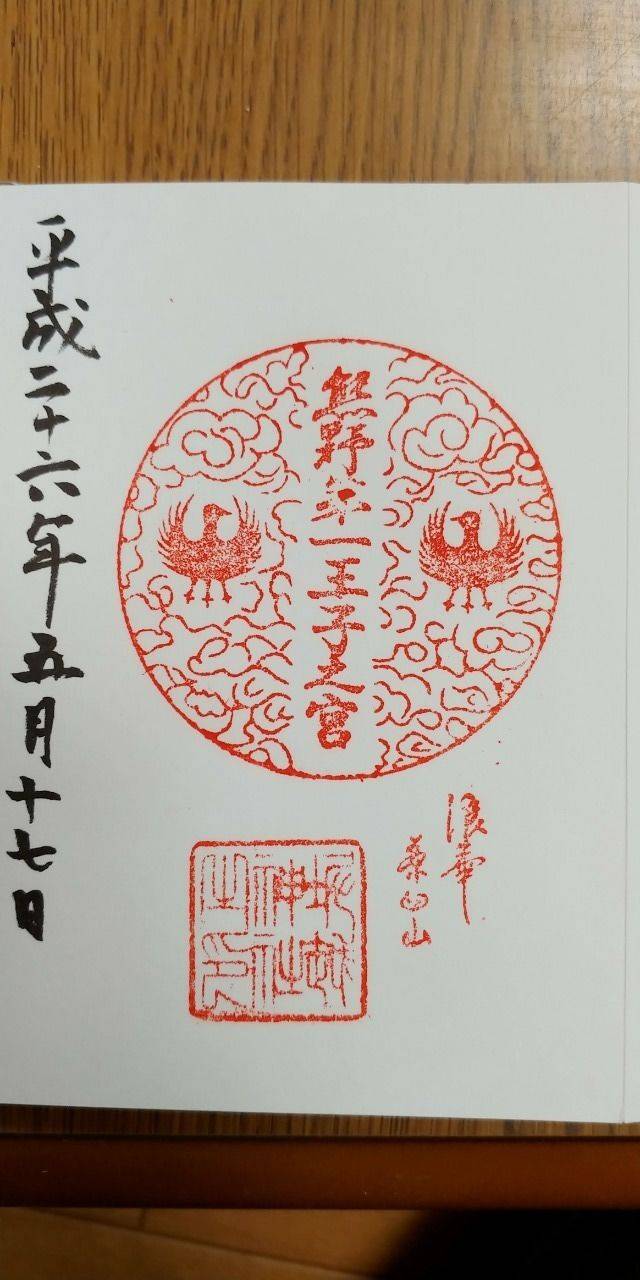 熊野第一王子之宮
浪華
茶臼山
堀越
神社
之印
平成二十六年五月十七日